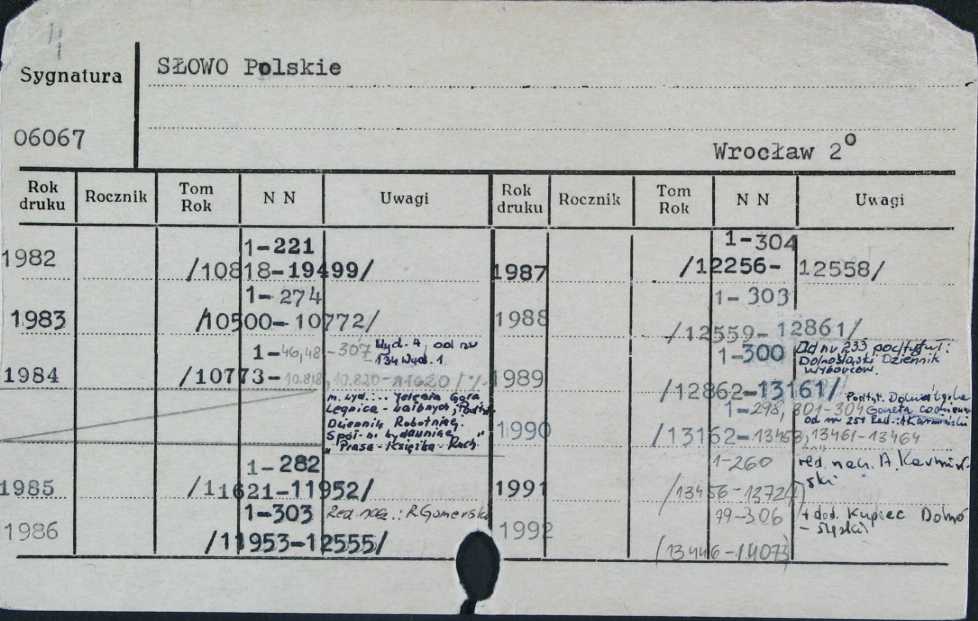 Sygnatura
SŁOWO Polskie
06067
Wrocław 2°
Rok druku Rocznik Tom Rok N N Uwagi Rok druku Rocznik Tom Rok N N Uwagi
1982 1-221
/10818-19499/
1983 1-274
/10500-10772/
1984 1-46,48-307 Wyd. A, od nr
134 Wyd. 1.
/10773-10.818, 10.820-11620/
m. wyd.: Jelenia Góra
Legnica-Wałbrzych,
Dziennik Robotniczy.
Spół-nia wydawnicza
"Prasa-Książka-Ruch"
1985 1-282
/11621-11952/
1986 1-303 Red. nacz.: R. Gomerski
/11953-12555/
1987 1-304
/12256-12558/
1988 1-303
/12559-12861/
1989 1-300 Od nru 233 podtytuł:
Dolnośląski Dziennik
Wyborców.
/12862-13161/
1990 1-298, 301-304 Gazeta codzienna
od nr 251 Red.: A. Karmiński
/13162-13458, 13461-13464
1991 1-260 red. nacz. A. Karmiń-
ski
1992 79-306 + dod. Kupiec Dolno-
-śląski
(13446-14073)